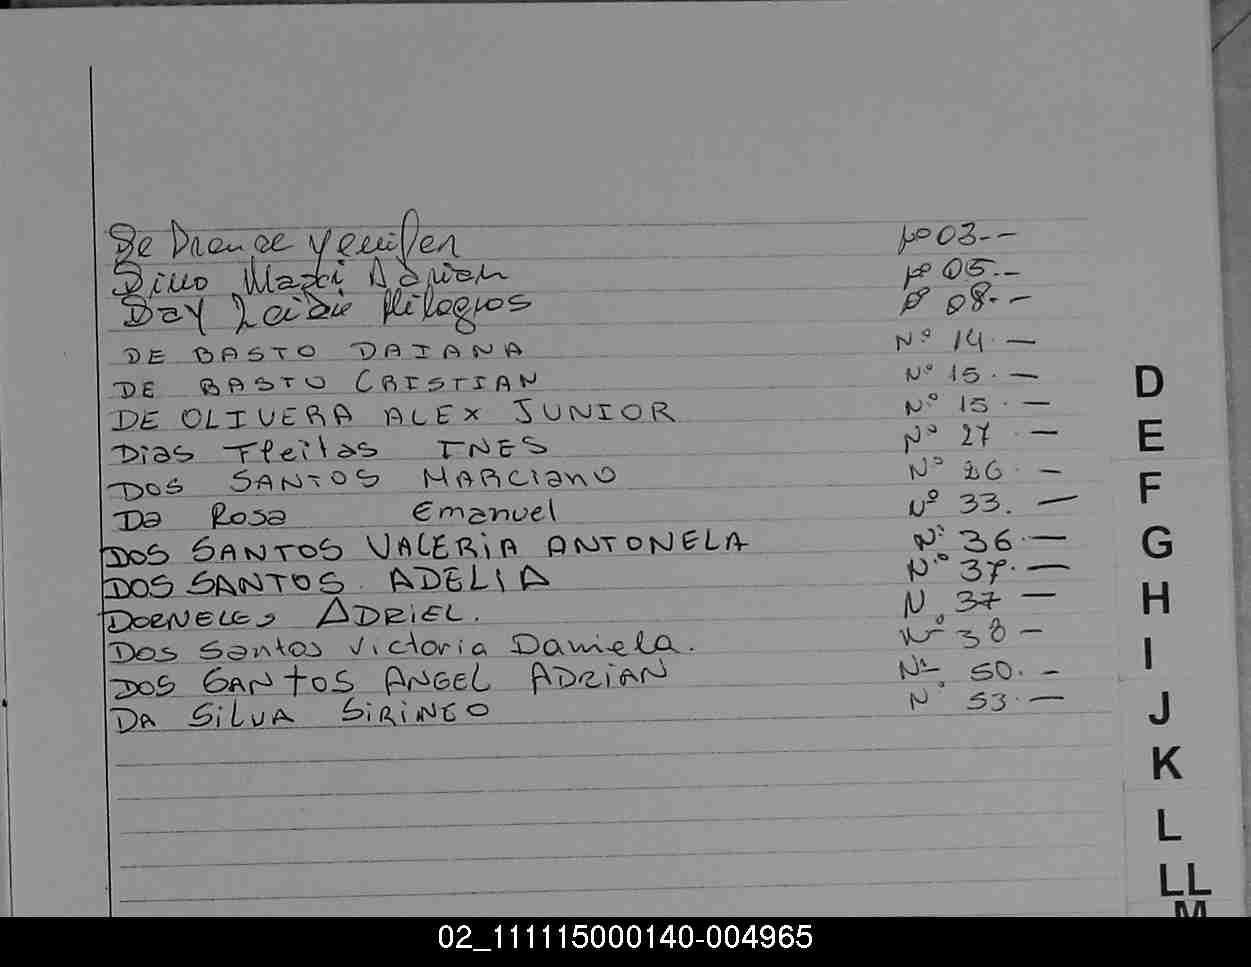 De yenifer Nº 03.--
Dino Maxi Adrian Nº 05.--
Day Milagros Nº 08.--
DE BASTO DAIANA Nº 14. —
DE BASTO CRISTIAN Nº 15. —
DE OLIVERA ALEX JUNIOR Nº 15. —
Dias Ffeitas INES Nº 27 —
DOS SANTOS MARCIANO Nº 26. —
Da Rosa Emanuel Nº 33. —
DOS SANTOS VALERIA ANTONELA Nº 36. —
DOS SANTOS. ADELIA Nº 37. —
DORNELES ADRIEL. Nº 37 —
Dos Santos Victoria Daniela. Nº 38 —
DOS SANTOS ANGEL ADRIAN Nº 50. —
DA SILVA SIRINEO Nº 53. —
D
E
F
G
H
I
J
K
L
LL
M
02_111115000140-004965